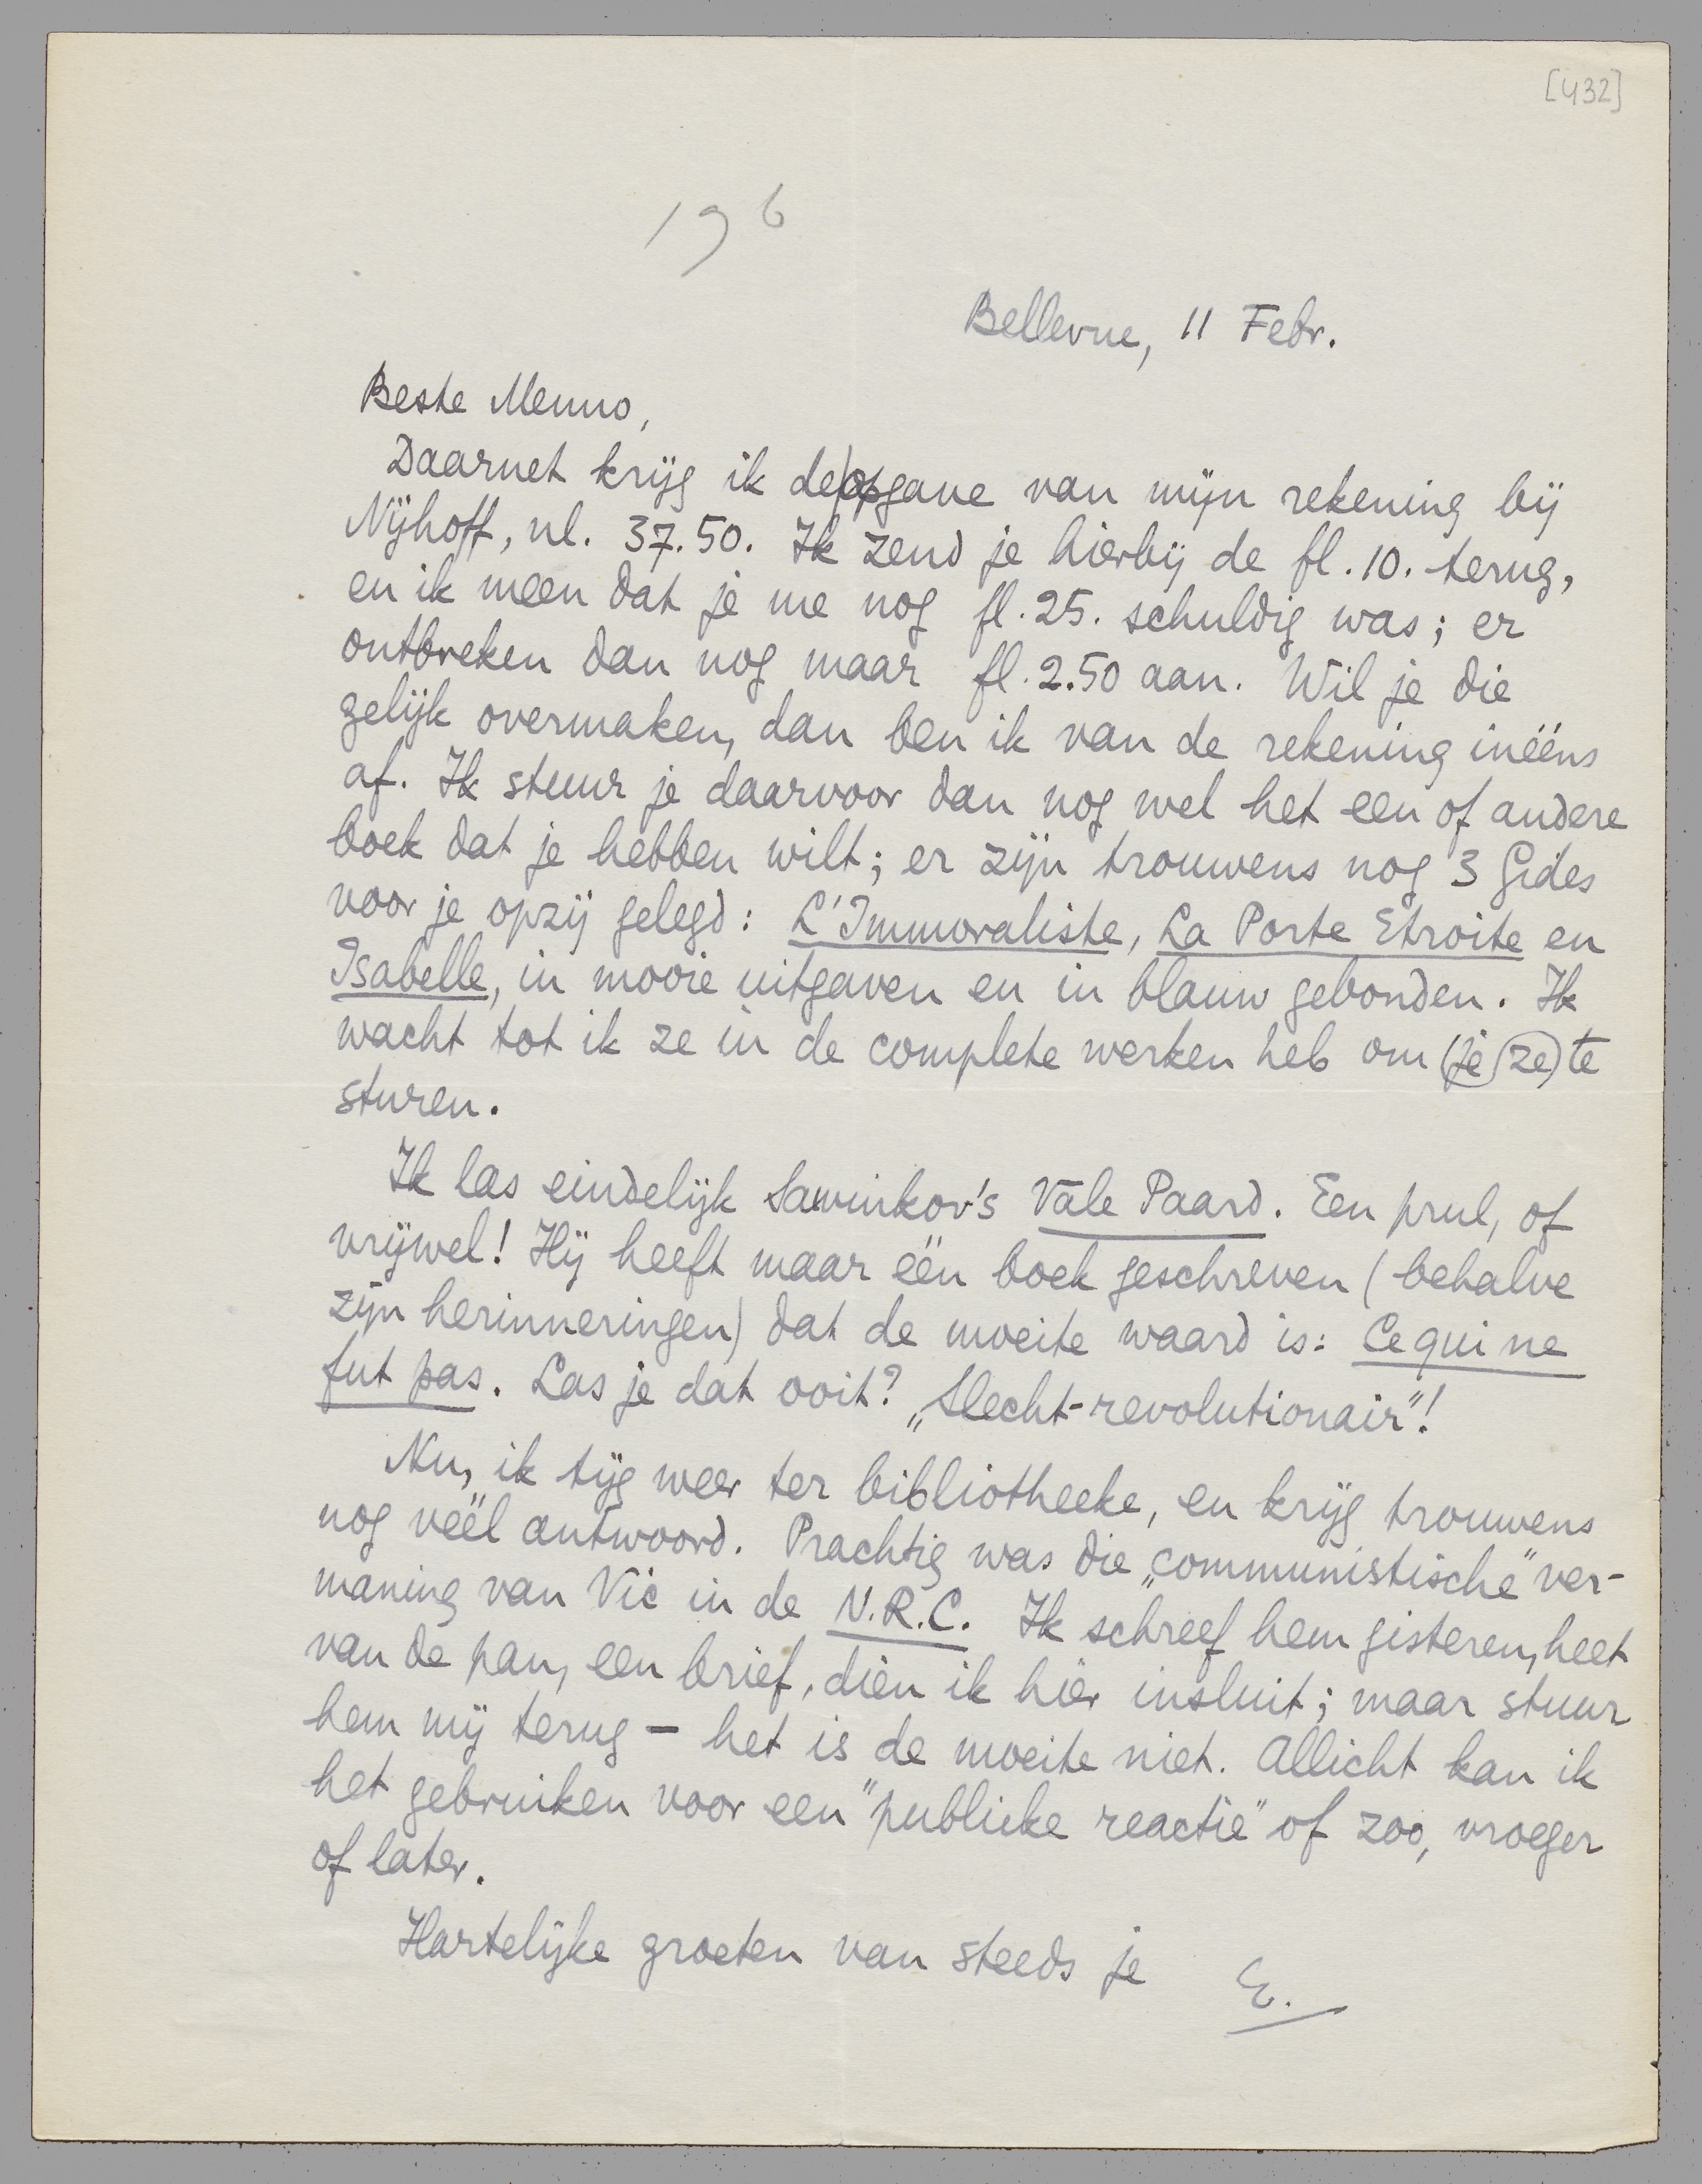 [432]
196
Bellevue, 11 Febr.
Beste Menno,
Daarnet krijg ik de opgave van mijn rekening bij
Nijhoff, nl. 37.50. Ik zend je hierbij de fl. 10. terug,
en ik meen dat je me nog fl. 25. schuldig was; er
ontbreken dan nog maar fl. 2.50 aan. Wil je die
gelijk overmaken, dan ben ik van de rekening inééns
af. Ik stuur je daarvoor dan nog wel het een of andere
boek dat je hebben wilt; er zijn trouwens nog 3 Gides
voor je opzij gelegd: L'Immoraliste, La Porte Etroite en
Isabelle, in mooie uitgaven en in blauw gebonden. Ik
wacht tot ik ze in de complete werken heb om (je (ze) te
sturen.
Ik las eindelijk Sawinkov's Vale Paard. Een prul, of
vrijwel! Hij heeft maar één boek geschreven (behalve
zijn herinneringen) dat de moeite waard is: Ce qui ne
fut pas. Las je dat ooit? „Slecht-revolutionair"!
Nu, ik tijg weer ter bibliotheeke, en krijg trouwens
nog véél antwoord. Prachtig was die „communistische" ver-
maning van Vic in de N.R.C. Ik schreef hem gisteren, heet
van de pan, een brief, dien ik hier insluit; maar stuur
hem mij terug – het is de moeite niet. Allicht kan ik
het gebruiken voor een "publieke reactie" of zoo, vroeger
of later.
Hartelijke groeten van steeds je E.